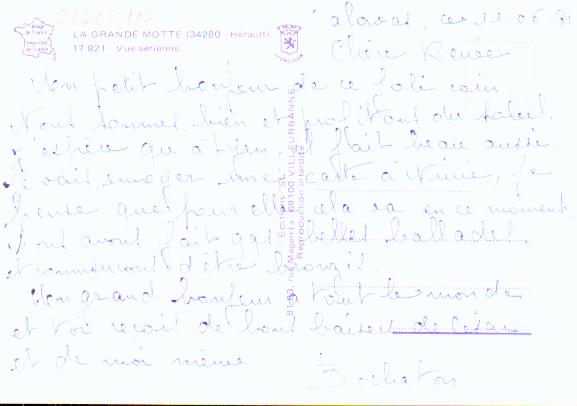 LA GRANDE MOTTE (34280 - Hérault)
17 821 - Vue aérienne.
image de France
imprimée de France
Palavas, ce 11.06.
Chère Renée
Un petit bonjour de ce joli coin.
Nous sommes bien et profitons du soleil.
J'espère qu'à Lyon, il fait beau aussi.
Je vais envoyer une carte à Nine, je
pense que pour elle cela va en ce moment.
Nous avons fait qqs belles ballades,
et commençons d'être bronzés.
Un grand bonjour à tout le monde
et toi reçoit de bons baisers de César
et de moi-même
Bochaton
Editions "SL"
81-83, rue Magenta, 69100 VILLEURBANNE
Reproduction interdite